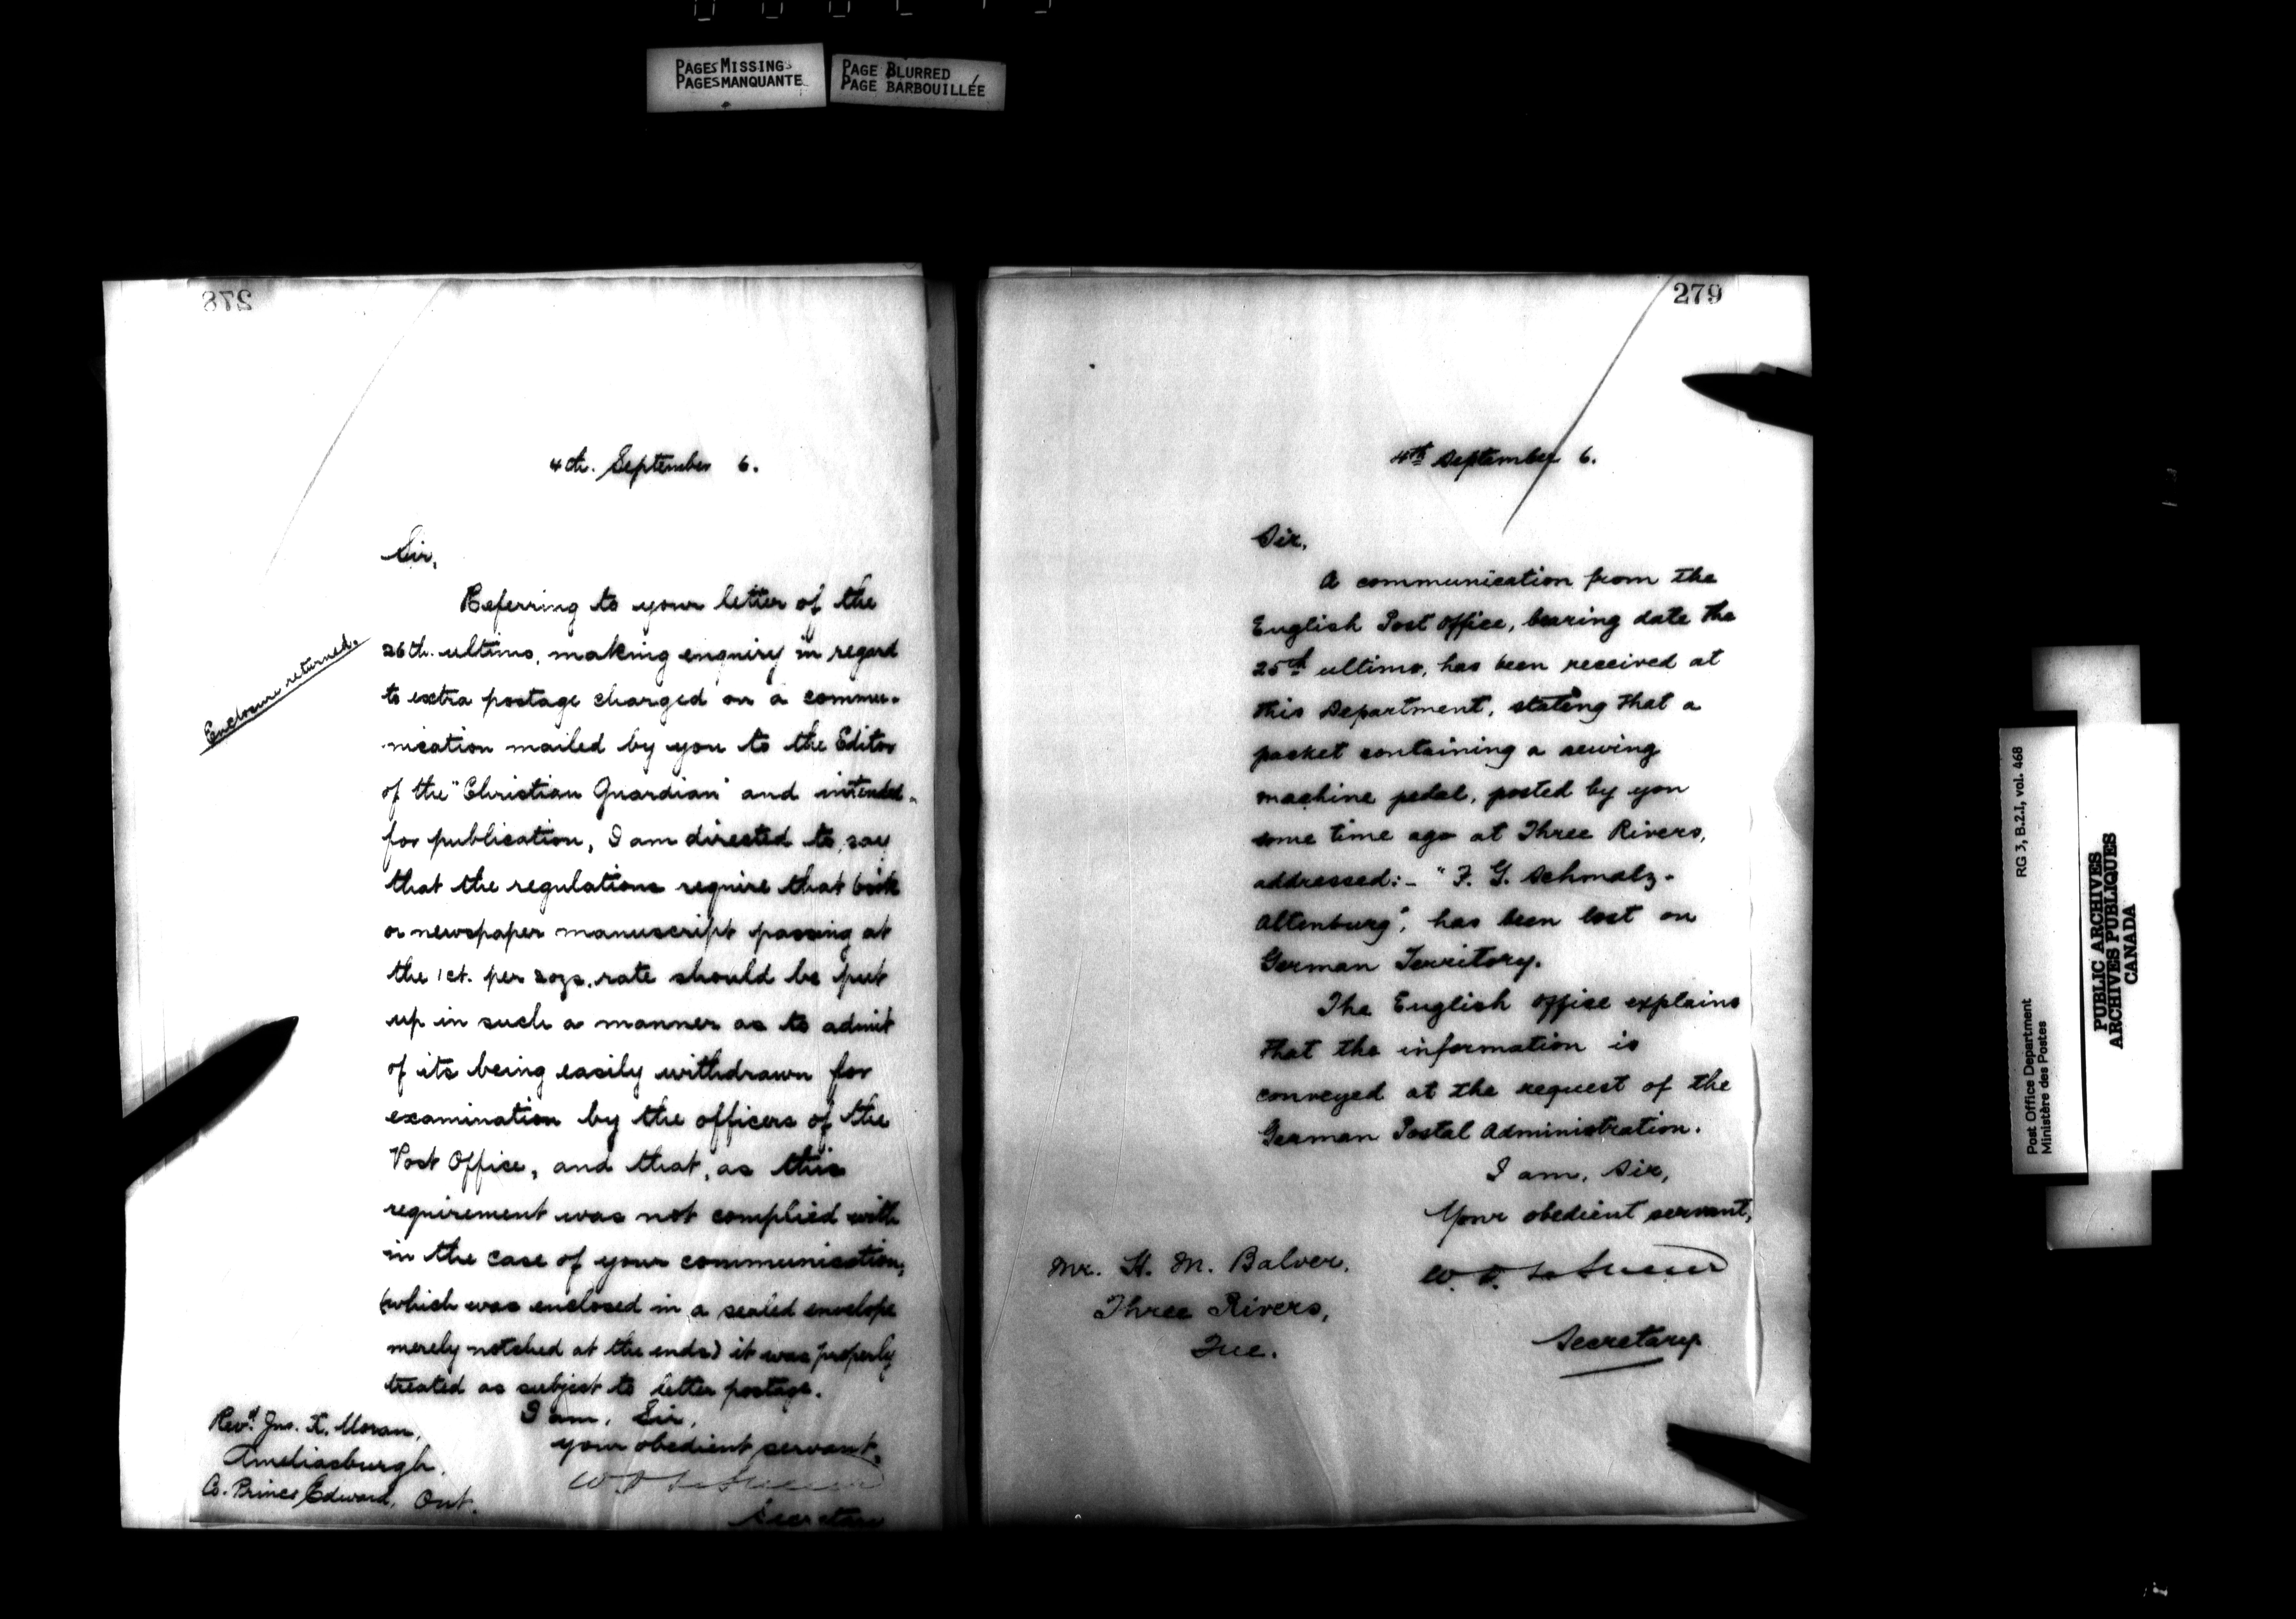 PAGES MISSING
PAGES MANQUANTE
PAGE BLURRED
PAGE BARBOUILLÉE
278
4th. September 6.
Sir,
Referring to your letter of the
26th. ultimo, making enquiry in regard
to extra postage charged on a commu-
nication mailed by you to the Editor
of the "Christian Guardian" and intended
for publication, I am directed to say
that the regulations require that book
or newspaper manuscript passing at
the 1 ct. per 2 ozs. rate should be put
up in such a manner as to admit
of its being easily withdrawn for
examination by the officers of the
Post Office, and that, as this
requirement was not complied with
in the case of your communication,
(which was enclosed in a sealed envelope
merely notched at the ends) it was properly
treated as subject to letter postage.
I am, Sir,
your obedient servant,
Secretary
Enclosure returned.
Revd. Jno. K. Moran,
Ameliasburgh,
Co. Prince Edward, Ont.
279
4th September 6.
Sir,
A communication from the
English Post Office, bearing date the
25th ultimo, has been received at
this Department, stating that a
packet containing a sewing
machine pedal, posted by you
some time ago at Three Rivers,
addressed:- "F. G. Schmalz-
Altenburg", has been lost on
German Territory.
The English Office explains
that the information is
conveyed at the request of the
German Postal Administration.
I am, Sir,
Your obedient servant,
Secretary
Mr. H. M. Balver,
Three Rivers,
Que.
Post Office Department
Ministère des Postes
RG 3, B.2.I, vol. 468
PUBLIC ARCHIVES
ARCHIVES PUBLIQUES
CANADA